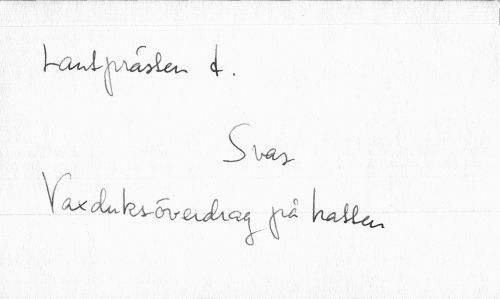 Lantprästen d.
Svar
Vaxduksöverdrag på hatten